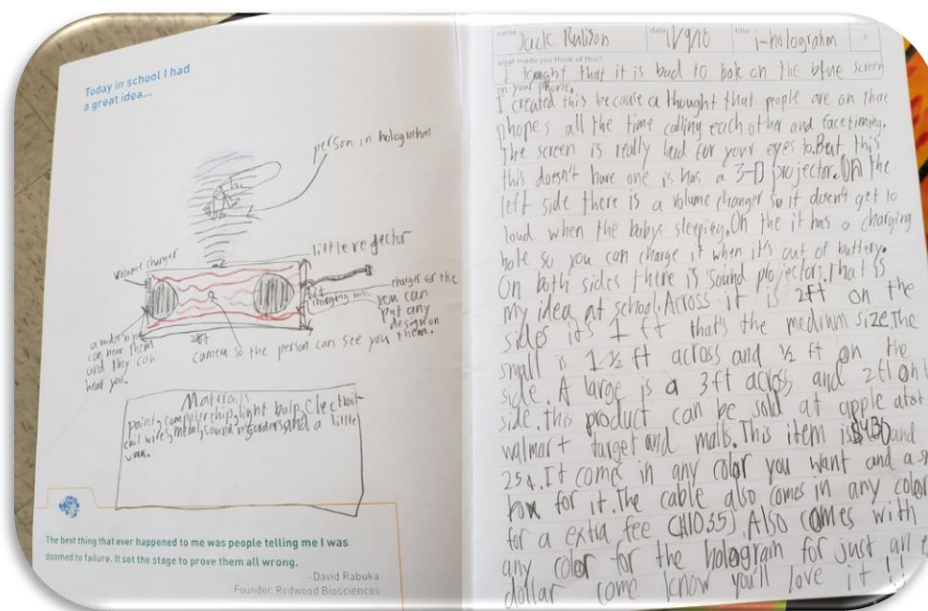 Today in school I had
a great idea...
person in holograthm
little refector
volume changer
charger for the
charging hole
you can
put any
design on
them.
can hear them
and they can
hear you.
2ft
camera so the person can see you
Materails
paint, computer chip, light bulp, Electricit
coil wires, metal, sound regorders, and a little
The best thing that ever happened to me was people telling me I was
doomed to failure. It set the stage to prove them all wrong.
-David Rabuka
Founder, Redwood Biosciences
name Jack date title i-holograhm
what made you think of this?
I tought that it is bad to look on the blue screen
on your phone.
I created this because a thought that people are on thar
phones all the time calling each other and facetiming.
The screen is really bad for your eyes to. But this
this doesn't have one is has a 3-D projector. On the
left side there is a volume changer so it doesn't get to
loud when the babys sleeping. On the it has a charging
hole so you can charge it when it's out of battery.
On both sides there is sound projectors. That is
my idea at school. Across it is 2ft on the
sides it's 1 ft that's the medium size. The
small is 1 ½ ft across and ½ ft on the
side. A large is a 3ft across and 2ft on
side. this product can be sold at apple at&t
walmart target and malls. This item is $430 and
25¢. It comes in any color you want and a
box for it. The cable also comes in any color
for a extra fee Also comes with
any color for the hologram for just an
dollar come know you'll love it !!